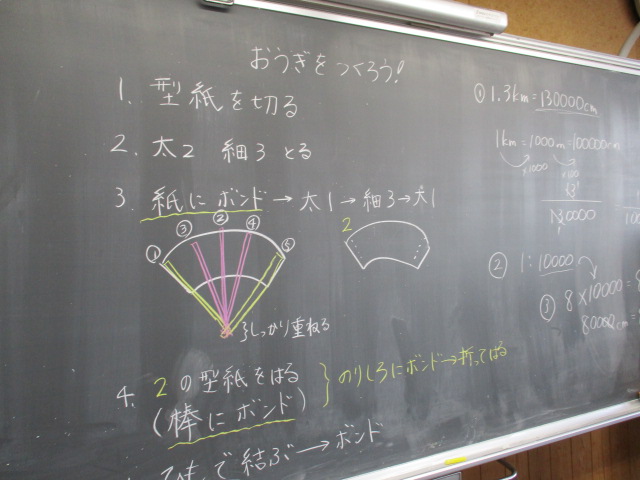 おうぎをつくろう!
1. 型紙を切る
2. 太2 細3 とる
3. 紙にボンド→太1→細3→太1
① ③ ② ④ ⑤
2
しっかり重ねる
4. 2の型紙をはる
(棒にボンド)
のりしろにボンド→折ってはる
で結ぶ→ボンド
① 1.3km=130000cm
1km=1000m=100000cm
×1000 ×100
② 1:10000
③ 8×10000=8
80000cm=